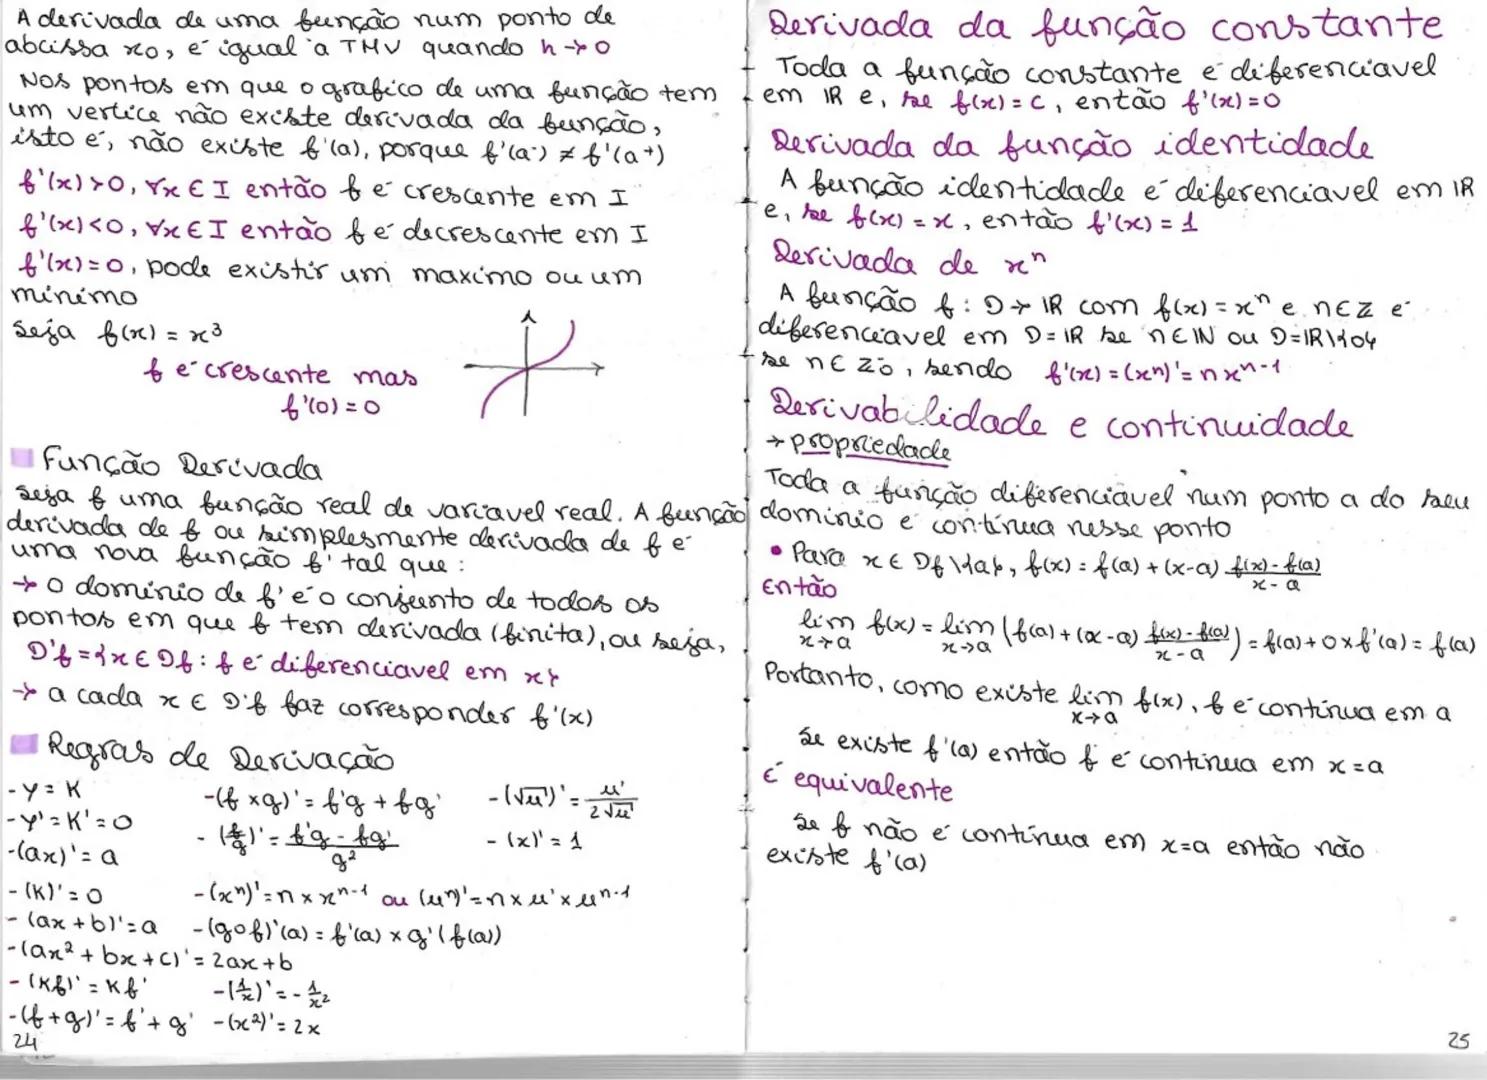 A derivada de uma função num ponto de
abcissa x₀, é igual à TMV quando h → 0
Nos pontos em que o grafico de uma função tem
um vertice não existe derivada da função,
isto é, não existe f'(a), porque f'(a⁻) ≠ f'(a⁺)
f'(x)>0, ∀x ∈ I então f é crescente em I
f'(x)<0, ∀x ∈ I então f é decrescente em I
f'(x)=0, pode existir um maximo ou um
minimo
Seja f(x) = x³
f é crescente mas
f'(0) = 0
Função Derivada
Seja f uma função real de variavel real. A função
derivada de f ou simplesmente derivada de f é
uma nova função f' tal que:
→ o dominio de f' é o conjunto de todos os
pontos em que f tem derivada (finita), ou seja,
D'f = {x ∈ Df : f é diferenciavel em x}
→ a cada x ∈ D'f faz corresponder f'(x)
Regras de Derivação
- y = K
- y' = K' = 0
- (ax)' = a
- (K)' = 0
- (ax + b)' = a
- (ax² + bx + c)' = 2ax + b
- (Kf)' = Kf'
- (f + g)' = f' + g'
- (f × g)' = f'g + fg'
- (f/g)' = (f'g - fg')/g²
- (xⁿ)' = n × xⁿ⁻¹ ou (uⁿ)' = n × u' × uⁿ⁻¹
- (g∘f)'(a) = f'(a) × g'(f(a))
- (1/x)' = - 1/x²
- (x²)' = 2x
- (√u)' = u'/(2√u)
- (x)' = 1
24
Derivada da função constante
Toda a função constante é diferenciavel
em IR e, se f(x) = c, então f'(x) = 0
Derivada da função identidade
A função identidade é diferenciavel em IR
e, se f(x) = x, então f'(x) = 1
Derivada de xⁿ
A função f: D → IR com f(x) = xⁿ e n ∈ Z é
diferenciavel em D = IR se n ∈ IN ou D = IR\{0}
se n ∈ Z₀⁻, sendo f'(x) = (xⁿ)' = n xⁿ⁻¹
Derivabilidade e continuidade
→ propriedade
Toda a função diferenciavel num ponto a do seu
dominio é contínua nesse ponto
• Para x ∈ Df\{a}, f(x) = f(a) + (x-a) (f(x) - f(a))/(x - a)
Então
lim x→a f(x) = lim x→a (f(a) + (x-a) (f(x) - f(a))/(x - a)) = f(a) + 0 × f'(a) = f(a)
Portanto, como existe lim x→a f(x), f é contínua em a
Se existe f'(a) então f é contínua em x = a
É equivalente
Se f não é contínua em x=a então não
existe f'(a)
25